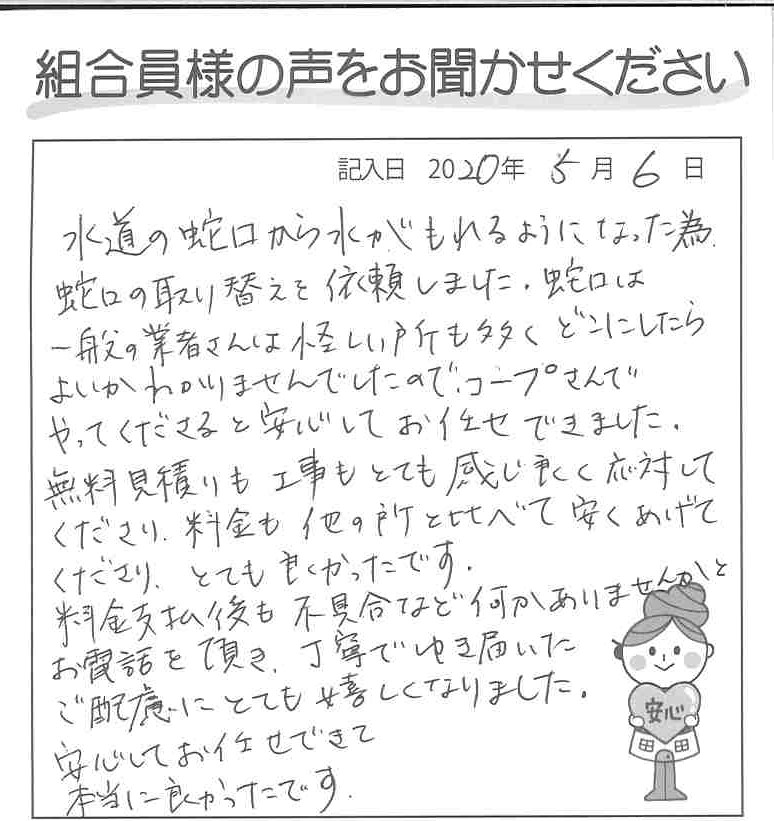 組合員様の声をお聞かせください
記入日 2020年 5月 6日
水道の蛇口から水がもれるようになった為、
蛇口の取り替えを依頼しました。蛇口は
一般の業者さんは怪しい所も多くどこにしたら
よいかわかりませんでしたので、コープさんで
やってくださると安心してお任せできました。
無料見積りも工事もとても感じ良く応対して
くださり、料金も他の所と比べて安くあげて
くださり、とても良かったです。
料金支払後も不具合など何かありませんかと
お電話を頂き、丁寧でゆき届いた
ご配慮にとても嬉しくなりました。
安心してお任せできて
本当に良かったです。
安心